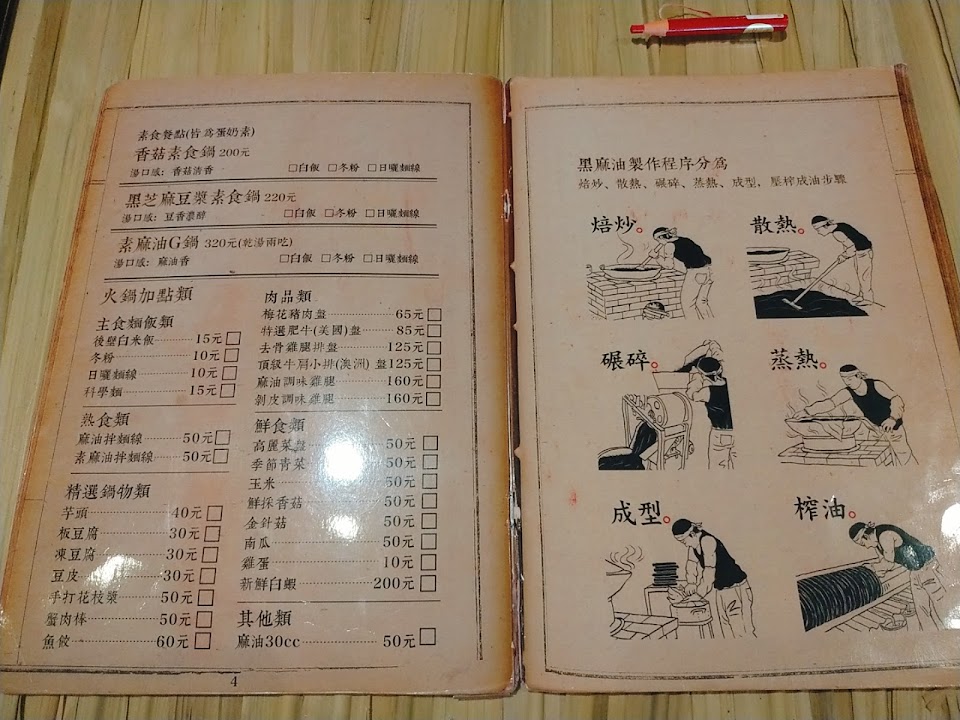 素食餐點(皆為蛋奶素)
香菇素食鍋 200元
湯口感: 香菇清香 □白飯 □冬粉 □日曬麵線
黑芝麻豆漿素食鍋 220元
湯口感: 豆香濃醇 □白飯 □冬粉 □日曬麵線
素麻油G鍋 320元(乾湯兩吃)
湯口感: 麻油香 □白飯 □冬粉 □日曬麵線
火鍋加點類
主食麵飯類
後壁白米飯 15元 □
冬粉 10元 □
日曬麵線 10元 □
科學麵 15元 □
熟食類
麻油拌麵線 50元 □
素麻油拌麵線 50元 □
精選鍋物類
芋頭 40元 □
板豆腐 30元 □
凍豆腐 30元 □
豆皮 30元 □
手打花枝漿 50元 □
蟹肉棒 50元 □
魚餃 60元 □
肉品類
梅花豬肉盤 65元 □
特選肥牛(美國)盤 85元 □
去骨雞腿排盤 125元 □
頂級牛肩小排(澳洲) 盤125元 □
麻油調味雞腿 160元 □
剝皮調味雞腿 160元 □
鮮食類
高麗菜盤 50元 □
季節青菜 50元 □
玉米 50元 □
鮮採香菇 50元 □
金針菇 50元 □
南瓜 50元 □
雞蛋 10元 □
新鮮白蝦 200元 □
其他類
麻油30cc 50元 □
4
黑麻油製作程序分為
焙炒、散熱、碾碎、蒸熱、成型, 壓榨成油步驟
焙炒。
散熱。
碾碎。
蒸熱。
成型。
榨油。